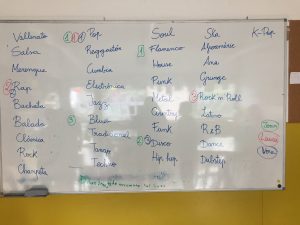 Vallenato
Salsa
Merengue
Rap
Bachata
Balada
Clásica
Rock
Champeta
1 1 1 Pop
Reggaetón
Cumbia
Electrónica
Jazz
3 Blues
Tradicional
Tango
Techno
Soul
1 Flamenco
House
Punk
Metal
Country
Funk
2 Disco
Hip hop
Ska
Ana
Grunge
3 Rock n Roll
Latino
R&B
Dance
Dubstep
K-Pop